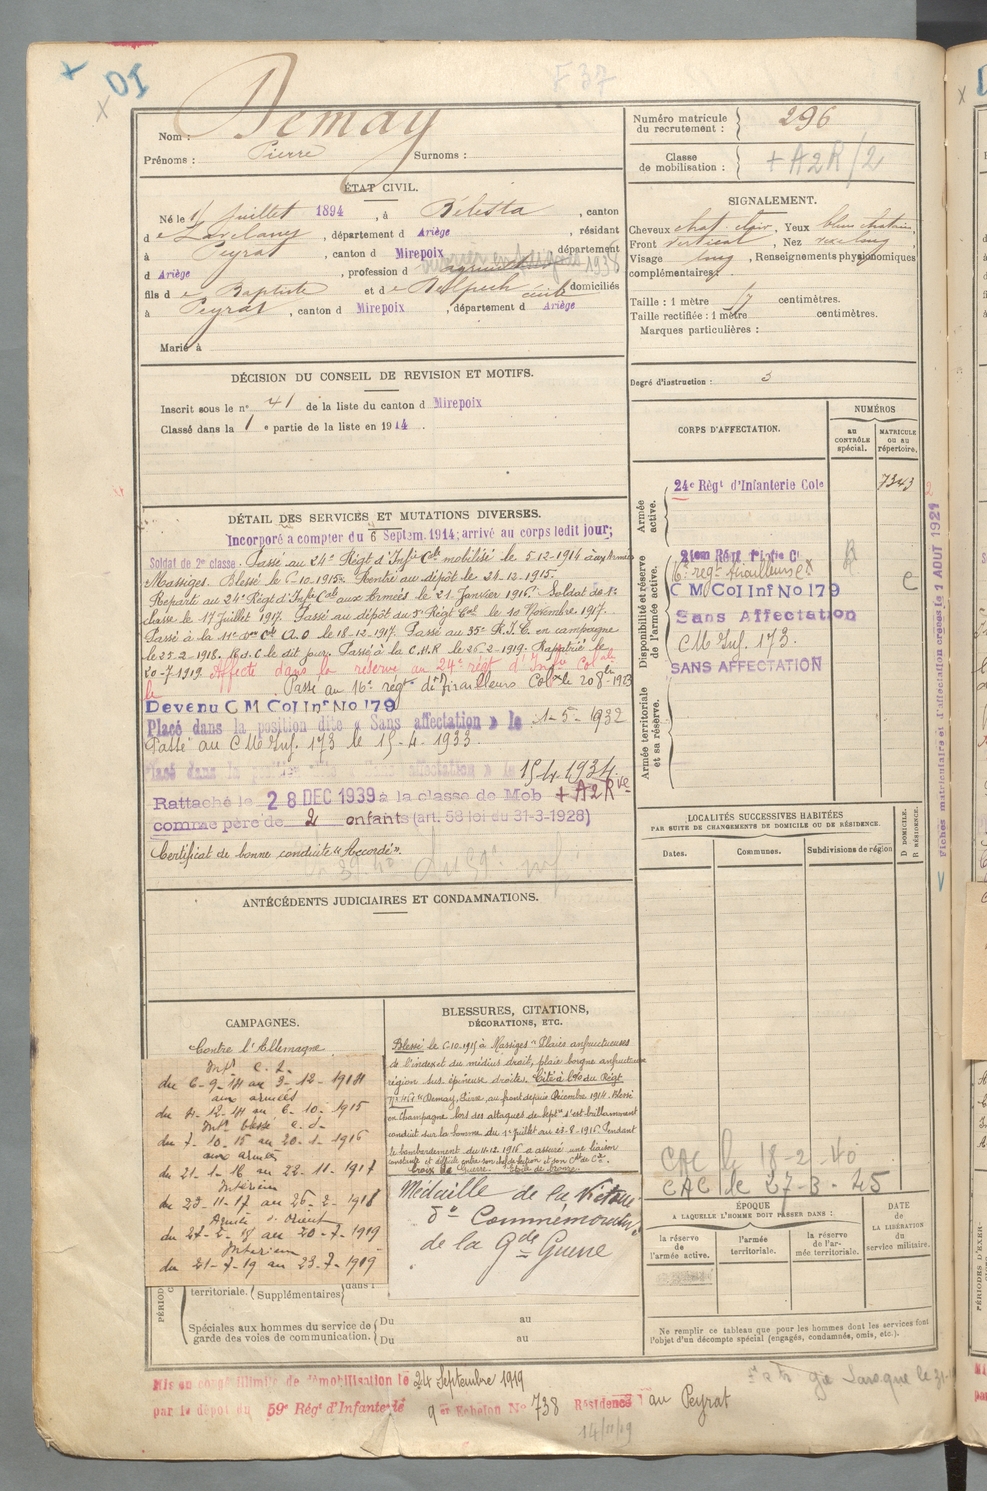 F 37
Nom : Demay
Prénoms : Pierre Surnoms :
Numéro matricule du recrutement : 296
Classe de mobilisation : + A2R/2
ÉTAT CIVIL.
Né le 1 Juillet 1894, à Bélesta, canton
de Lavelanet, département d Ariège, résidant
à Peyrat, canton d Mirepoix, département
d Ariège, profession d 1938
fils de Baptiste et de Delpech Cécile domiciliés
à Peyrat, canton d Mirepoix, département d Ariège
Marié à
SIGNALEMENT.
Cheveux chat. clair, Yeux
Front vertical, Nez
Visage long, Renseignements physionomiques
complémentaires :
Taille : 1 mètre centimètres.
Taille rectifiée : 1 mètre centimètres.
Marques particulières :
Degré d'instruction : 3
DÉCISION DU CONSEIL DE REVISION ET MOTIFS.
Inscrit sous le n° 41 de la liste du canton d Mirepoix
Classé dans la 1 e partie de la liste en 1914.
CORPS D'AFFECTATION.
NUMÉROS
au CONTRÔLE spécial.
MATRICULE ou au répertoire.
Armée active.
24e Régt d'Infanterie Cole 7343
Disponibilité et réserve de l'armée active.
16e régt tirailleurs
C M Col Inf No 179
Sans Affectation
CM Inf. 173.
SANS AFFECTATION
Armée territoriale et sa réserve.
DÉTAIL DES SERVICES ET MUTATIONS DIVERSES.
Incorporé à compter du 6 Septem. 1914; arrivé au corps ledit jour;
Soldat de 2e classe. Passé au 24e Régt d'Infie Cle mobilisé le 5-12-1914 aux Armées
Massiges. Blessé le 6-10-1915. Rentré au dépôt le 24-12-1915.
Reparti au 24e Régt d'Infie Cal aux Armées le 21 Janvier 1916. Soldat de 1e
classe le 17 Juillet 1917. Passé au dépôt du Régt Cal le 10 Novembre 1917.
Passé à la 11e Cle A.O le 18-12-1917. Passé au 35e R.I.C. en campagne
le 25-2-1918. le dit jour. Passé à la C.H.R le 26-2-1919. Rapatrié le
20-7-1919 Affecté dans la réserve au 24e régt d'Infie Colale
le Passé au 16e régt de Tirailleurs
Devenu C M Col Infie No 179
Placé dans la position dite « Sans affectation » le 1-5-1932
Passé au CM Inf. 173 le 15-4-1933.
Placé dans la position dite affectation » le 15-4-1934.
Rattaché le 28 DEC 1939 à la classe de Mob + A2Rve
comme père de 2 enfants (art. 58 loi du 31-3-1928)
Certificat de bonne conduite "Accordé".
Fiches matriculaire et d'affectation créées le 1 AOUT 1921
ANTÉCÉDENTS JUDICIAIRES ET CONDAMNATIONS.
LOCALITÉS SUCCESSIVES HABITÉES
PAR SUITE DE CHANGEMENTS DE DOMICILE OU DE RÉSIDENCE.
Dates. Communes. Subdivisions de région D DOMICILE. R RÉSIDENCE.
CAC le 18-2-40
CAC le 27-3-45
CAMPAGNES.
Contre l'Allemagne
Intr C.S.
du 6-9-14 au 3-12-1914
aux armées
du 4-12-14 au 6-10-1915
Intr blessé C.S.
du 7-10-15 au 20-1-1916
aux armées
du 21-1-16 au 22-11-1917
Intérieur
du 23-11-17 au 26-2-1918
Armée d'Orient
du 27-2-18 au 20-7-1919
Intérieur
du 21-7-19 au 23-7-1919
BLESSURES, CITATIONS, DÉCORATIONS, ETC.
Blessé le 6-10-1915 à Massiges "Plaies anfractueuses
de l'index et du médius droit, plaie borgne anfractueuse
région sus épineuse droite. Cité à l'O/ du Régt
"Demay, Pierre, au front depuis Décembre 1914. Blessé
en Champagne lors des attaques de Septre s'est brillamment
conduit sur la Somme du 1er Juillet au 23-8-1916. Pendant
le bombardement du 11-12-1916 a assuré une liaison
constante et difficile entre son bataillon et son
Croix de Guerre. Etoile de bronze.
Médaille de la Victoire
do Commémorative
de la Gde Guerre
ÉPOQUE
A LAQUELLE L'HOMME DOIT PASSER DANS :
la réserve de l'armée active.
l'armée territoriale.
la réserve de l'armée territoriale.
DATE de LA LIBÉRATION du service militaire.
Ne remplir ce tableau que pour les hommes dont les services font
l'objet d'un décompte spécial (engagés, condamnés, omis, etc.).
territoriale. (Supplémentaires) dans
Spéciales aux hommes du service de garde des voies de communication. Du au
Du au
Mis en congé illimité de démobilisation le 24 Septembre 1919
par le dépôt du 59e Régt d'Infanterie 9 er Echelon No 738 Résidence au Peyrat
14/11/19
Laroque le 31-